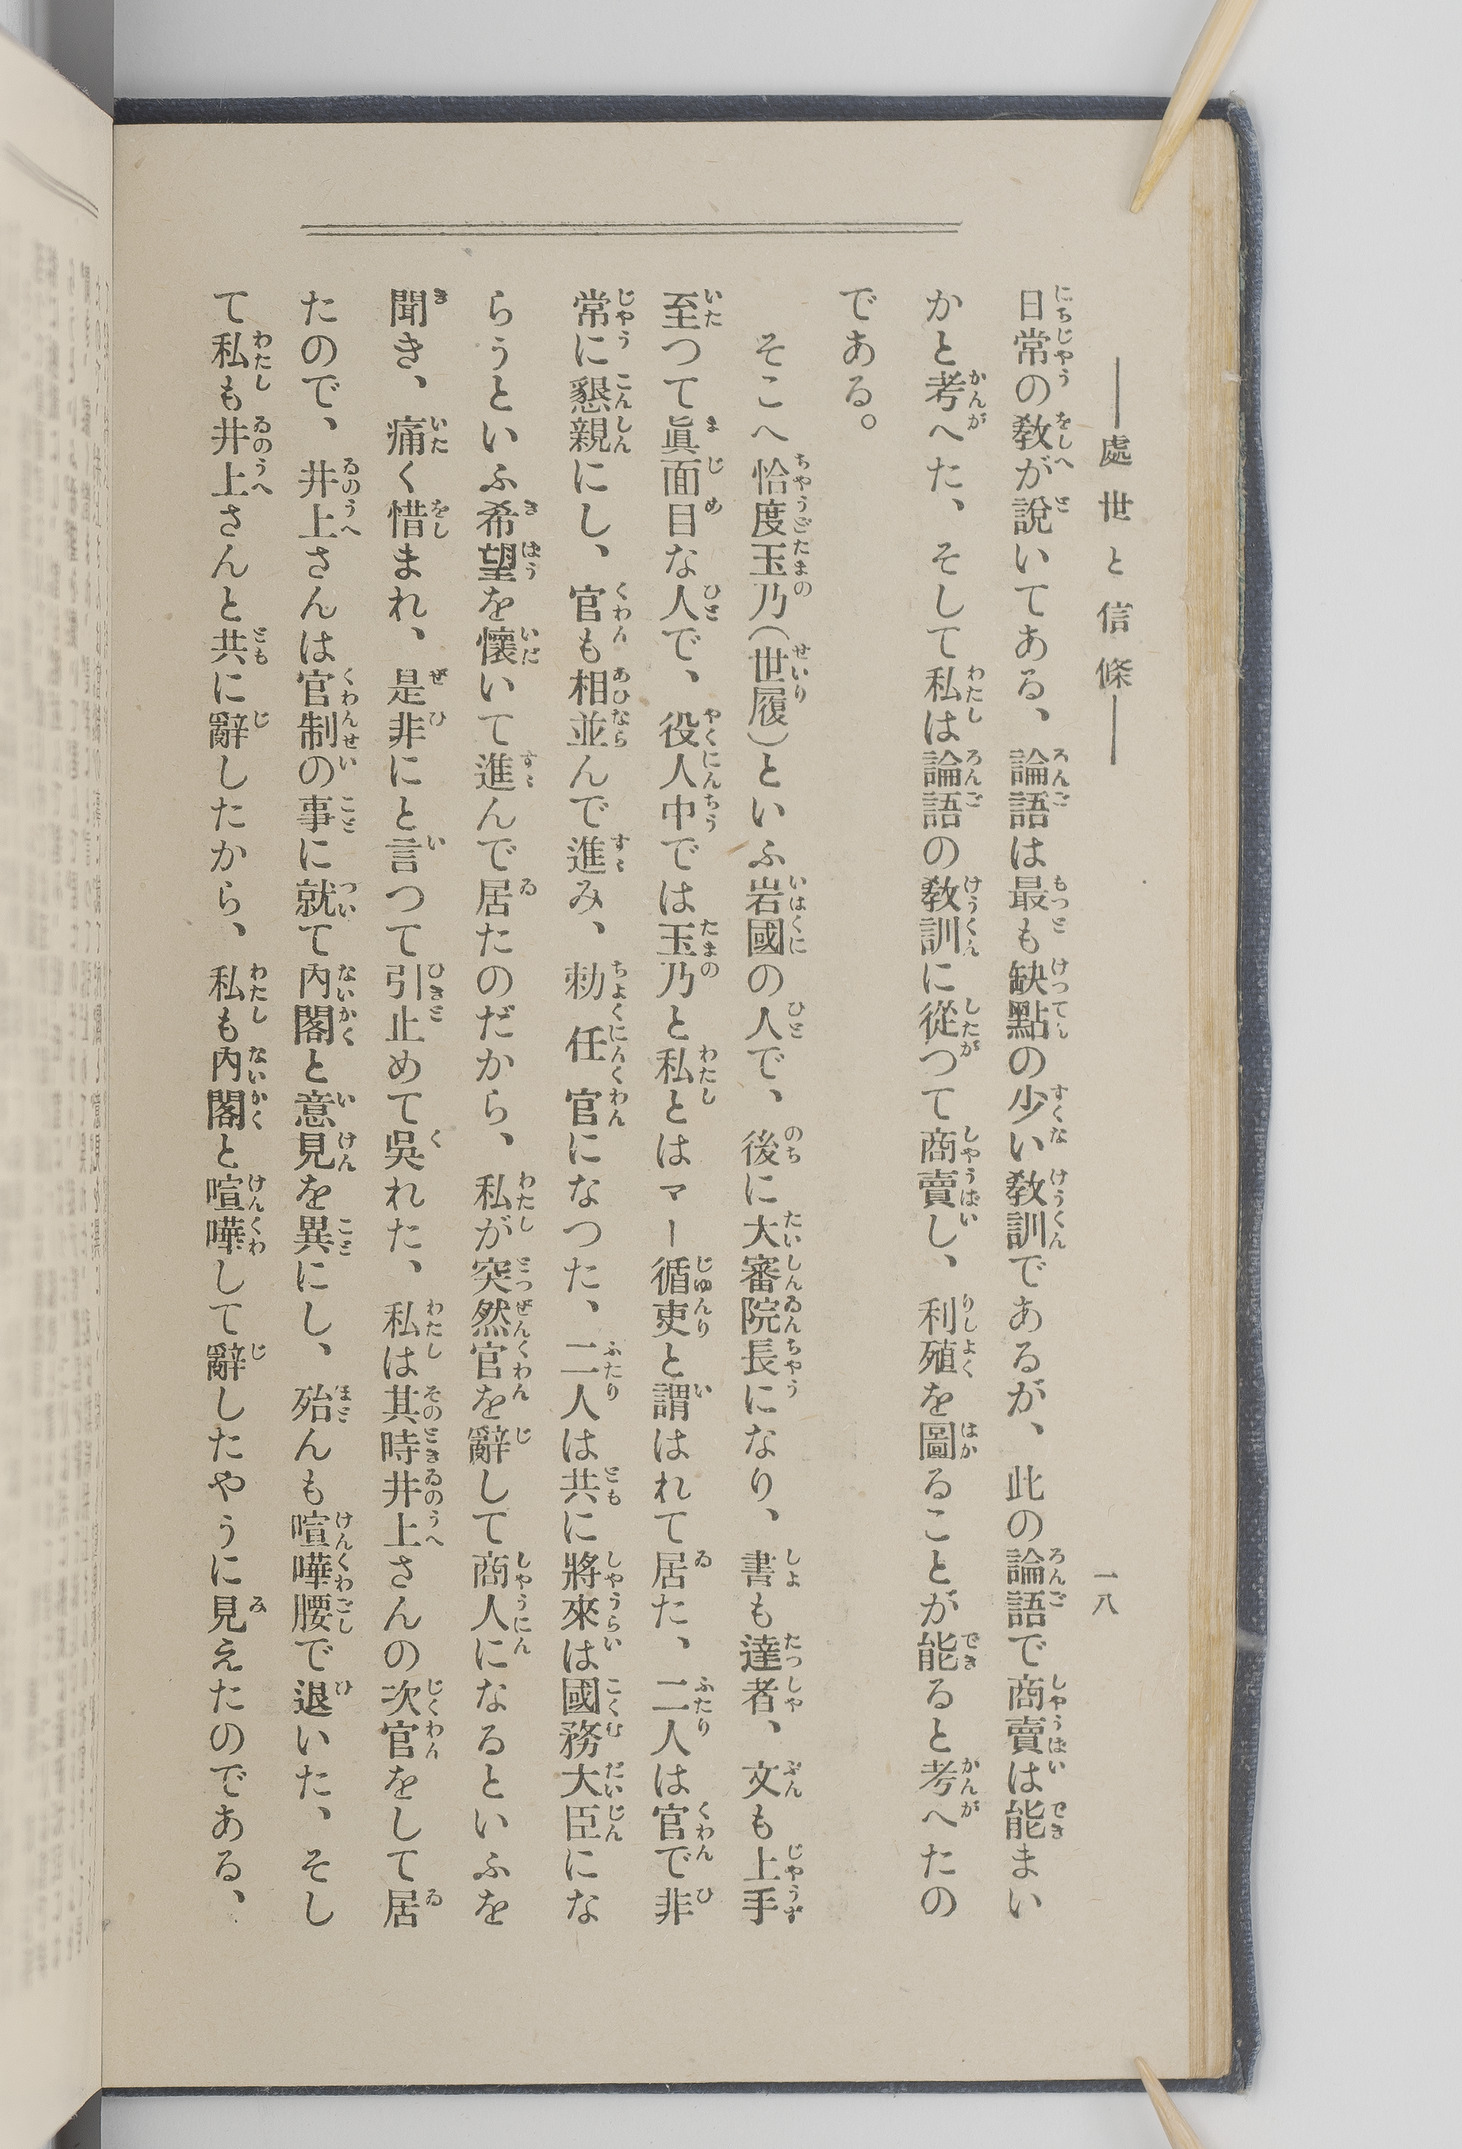 ――處世と信條――
一八
日常の敎が說いてある、論語は最も缺點の少い敎訓であるが、此の論語で商賣は能まい
かと考へた、そして私は論語の敎訓に從つて商賣し、利殖を圖ることが能ると考へたの
である。
そこへ恰度玉乃(世履)といふ岩國の人で、後に大審院長になり、書も達者、文も上手
至つて眞面目な人で、役人中では玉乃と私とはマー循吏と謂はれて居た、二人は官で非
常に懇親にし、官も相並んで進み、勅任官になつた、二人は共に將來は國務大臣にな
らうといふ希望を懷いて進んで居たのだから、私が突然官を辭して商人になるといふを
聞き、痛く惜まれ、是非にと言つて引止めて吳れた、私は其時井上さんの次官をして居
たので、井上さんは官制の事に就て內閣と意見を異にし、殆んも喧嘩腰で退いた、そし
て私も井上さんと共に辭したから、私も內閣と喧嘩して辭したやうに見えたのである、